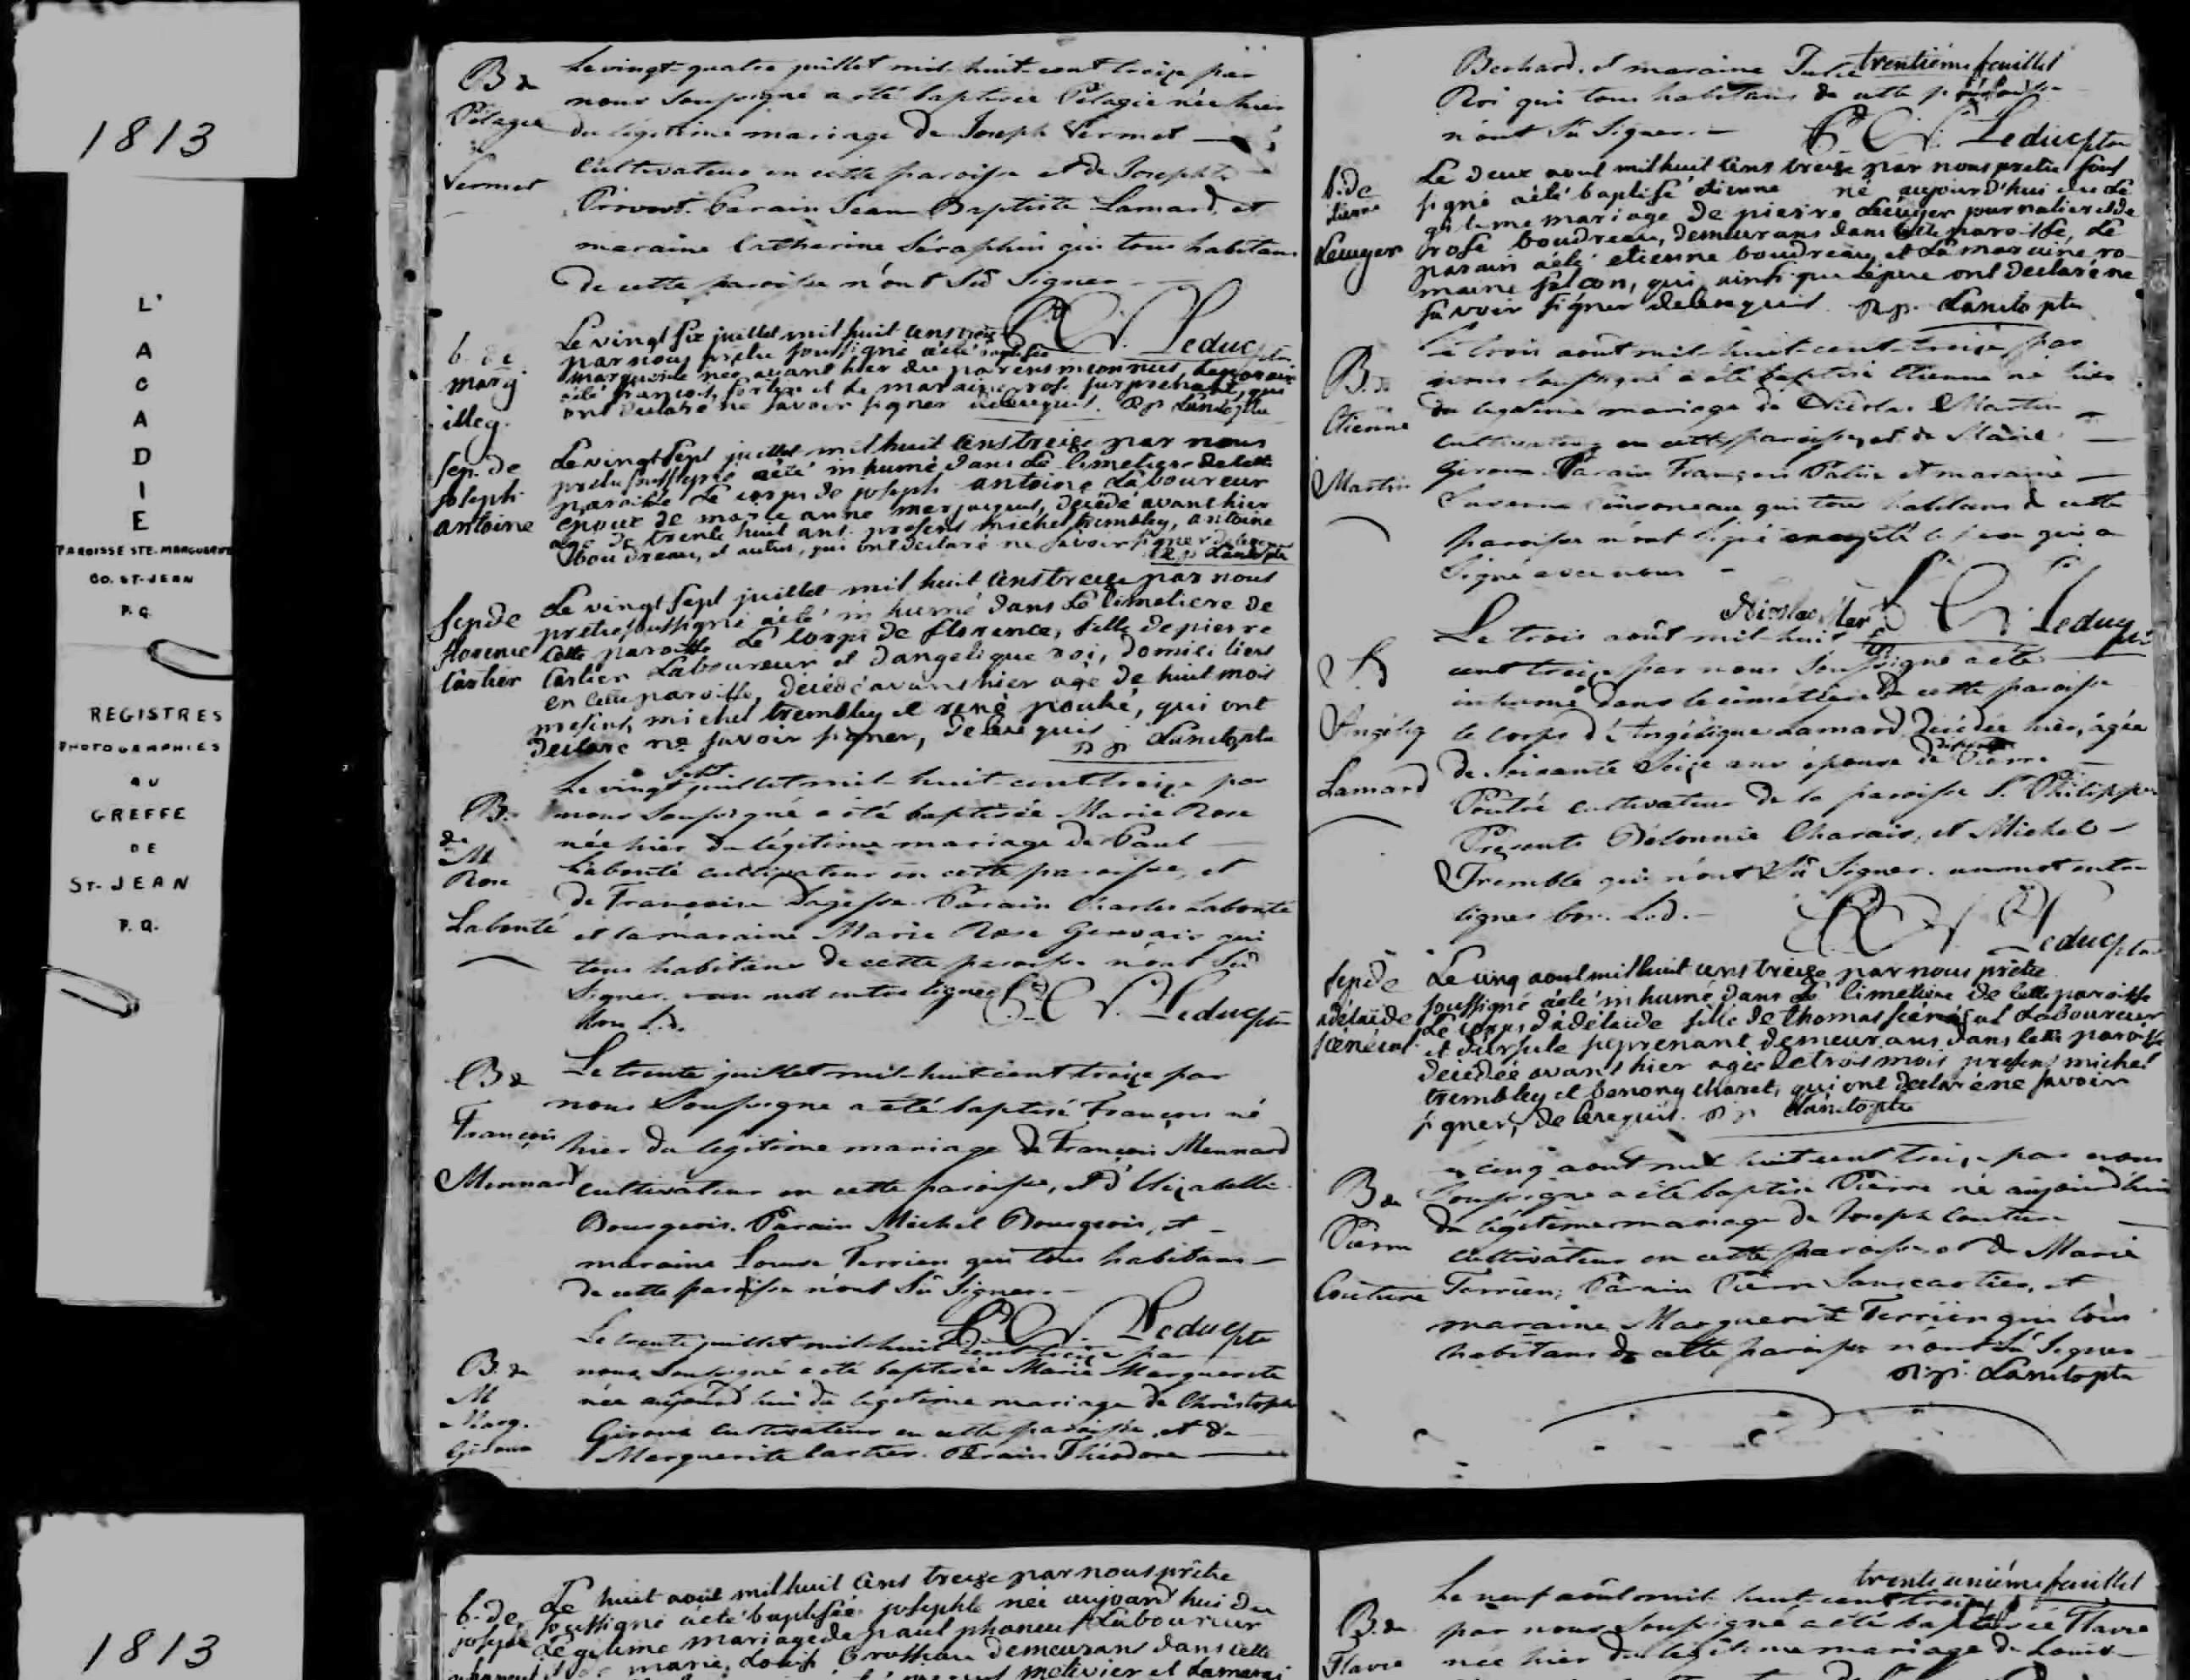 1813
L'
A
C
A
D
I
E
PAROISSE STE. MARGUERITE
CO. ST-JEAN
P.Q.
REGISTRES
PHOTOGRAPHIES
AU
GREFFE
DE
ST-JEAN
P.Q.
B de
Pélagie
Vermet
Le vingt-quatre juillet mil-huit-cent treize par
nous soussigné a été baptisée Pélagie née hier
du légitime mariage de Joseph Vermet
cultivateur en cette paroisse et de Josephte
Provost. Parain Jean Baptiste Lamard, et
maraine Catherine Séraphin qui tous habitans
de cette paroisse n'ont sû signer
Leduc ptre
b. de
marg
illeg.
Le vingt six juillet mil huit cens treize
par nous prêtre soussigné a été baptisée
marguerite née avant hier de parens inconnus, Le parain
a été françois fortin et la maraine rose surprenant, qui
ont déclaré ne savoir signer de ce requis. Lancto ptre
sep. de
joseph
antoine
Le vingt sept juillet mil huit cens treize par nous
prêtre soussigné a été inhumé dans le cimetiere de cette
paroisse le corps de joseph antoine Laboureur
epoux de marie anne decédé avant hier
agé de trente huit ans. presens michel trembley, antoine
boudreau, et autres, qui ont declaré ne savoir signer de ce requis
Lancto ptre
sep de
florence
Cartier
Le vingt sept juillet mil huit cens treize par nous
prêtre soussigné a été inhumé dans le cimetiere de
cette paroisse le corps de florence, fille de pierre
Cartier Laboureur et d'angelique roi, domiciliers
en cette paroisse, decédé avant hier agé de huit mois
presens michel trembley et rené , qui ont
declaré ne savoir signer, de ce requis
Lanctoptre
B.
de
M
Rose
Labonté
sept
Le vingt juillet mil-huit-cent treize par
nous soussigné a été baptisée Marie Rose
née hier du légitime mariage de Paul
Labonté cultivateur en cette paroisse, et
de Françoise Parain Charles Labonté
et la maraine Marie Rose Gervais qui
tous habitans de cette paroisse n'ont sû
signer. un mot entre lignes
bon L.d.
Leduc ptre
B de
François
Mennard
Le trente juillet mil-huit-cent treize par
nous soussigné a été baptisé François né
hier du légitime mariage de François Mennard
cultivateur en cette paroisse, et d'Elizabeth
Bourgeois. Parain Michel Bourgeois, et
maraine Louise Terrien qui tous habitans
de cette paroisse n'ont sû signer.
Leduc ptre
B. de
M
Marg.
Giroux
Le trente juillet mil-huit cent treize par
nous soussigné a été baptisée Marie Marguerite
née aujourd'hui du légitime mariage de Christophe
Giroux cultivateur en cette paroisse, et de
Marguerite Cartier. Parain Théodore
trentiéme feuillet
Berhard, et maraine Julie
Roi qui tous habitans de cette paroisse
n'ont sû signer.
Leduc ptre
b. de
Etienne
Lecuyer
Le deux aout mil huit cens treize par nous pretre sous
signé a été baptisé etienne né aujourd'hui du Lé
gitime mariage de pierre Lécuyer journalier et de
rose boudreau, demeurans dans cette paroisse, Le
parain a été etienne boudreau, et La maraine ro-
maine falcon, qui, ainsi que le pere ont declaré ne
savoir signer de ce requis. Lanctoptre
B. de
Etienne
Martin
Le trois août mil-huit-cent-treize par
nous soussigné a été baptisé Etienne né hier
du legitime mariage de Nicolas Martin
cultivateur en cette paroisse, et de Marie
Giroux. Parain François et maraine
qui tous habitans de cette
paroisse n'ont signé excepté le père qui a
signé avec nous
Nicolas Mar
Leduc ptre
S. d
Angéliq
Lamard
Le trois août mil-huit
cent treize par nous soussigné a été
inhumé dans le cimetière de cette paroisse
le corps d'Angélique Lamard, décédée hier, âgée
de soixante seize ans épouse de Pierre
cultivateur de la paroisse St. Philippe
Présents Bélonnie Charais, et Michel
Tremblé qui n'ont sû signer. un mot entre
lignes bon. L.d.
Leduc ptre
sep de
adelaïde
senécal
Le cinq aout mil huit cens treize par nous prêtre
soussigné a été inhumé dans le cimetiere de cette paroisse
le corps d'adélaïde fille de thomas senécal Laboureur
et d'ursule suprenant demeurans dans cette paroisse
decédée avant hier agée de trois mois presens michel
trembley et benony charet, qui ont declaré ne savoir
signer, de ce requis. Lanctoptre
B de
Pierre
Couture
Le cinq aout mil huit cent treize par nous
soussigné a été baptisé Pierre né aujourd'hui
du légitime mariage de Joseph Couture
cultivateur en cette paroisse, et de Marie
Terrien; Parain Pierre Sanscartier, et
maraine Marguerite Terrien qui tous
habitans de cette paroisse n'ont sû signer
Lanctoptre
1813
b. de
josephte
Le huit aout mil huit cens treize par nous prêtre
soussigné a été baptisée josephte née aujourd'hui du
Légitime mariage de paul phaneuf Laboureur
et de marie Louise demeurans dans cette
trente uniéme feuillet
B. de
Flavie
Le neuf août mil-huit-cent treize
par nous soussigné a été baptisée Flavie
née hier du légitime mariage de Louis